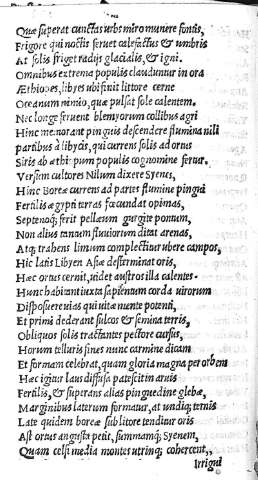 Quæ superat cunctas urbs miro munere fontis,
Frigore qui noctis feruet calefactus & umbris
At solis friget radijs glacialis, & igni.
Omnibus extrema populis clauduntur in ora
Æthiopes, libyes ubi finit littore cerne
Oceanum minio, quæ pulsat sole calentem.
Nec longe feruent blemyorum collibus agri
Hinc memorant pinguis descendere flumina nili
partibus à libycis, qui currens solis ad ortus
Siris ab æthiopum populis cognomine fertur.
Versum cultores Nilum dixere Syenes,
Hinc Boreæ currens ad partes flumine pingui
Fertilis ægypti terras fœcundat opimas,
Septenoq; ferit pellæum gurgite pontum,
Non alius tantum fluuiorum ditat arenas,
Atq; trahens limum complectitur ubere campos,
Hic latis Libyen Asiæ desterminat oris,
Hæc ortus cernit, uidet austros illa calentes.
Hunc habitant iuxta sapientum corda uirorum
Disposuere uias qui uitæ mente potenti,
Et primi dederant sulcos & semina terris,
Obliquos solis tractantes pectore cursus,
Horum telluris fines nunc carmine dicam
Et formam celebrat, quam gloria magna per orbem
Hæc igitur laus diffusa patescit in aruis
Fertilis, & superans alias pinguedine glebæ,
Marginibus laterum formatur, at undiq; ternis
Late quidem boreæ sub littore tenditur oris
Ast ortus angusta petit, summamq; Syenem,
Quam celsi media montes utrinq; cohercent,
Irrigui